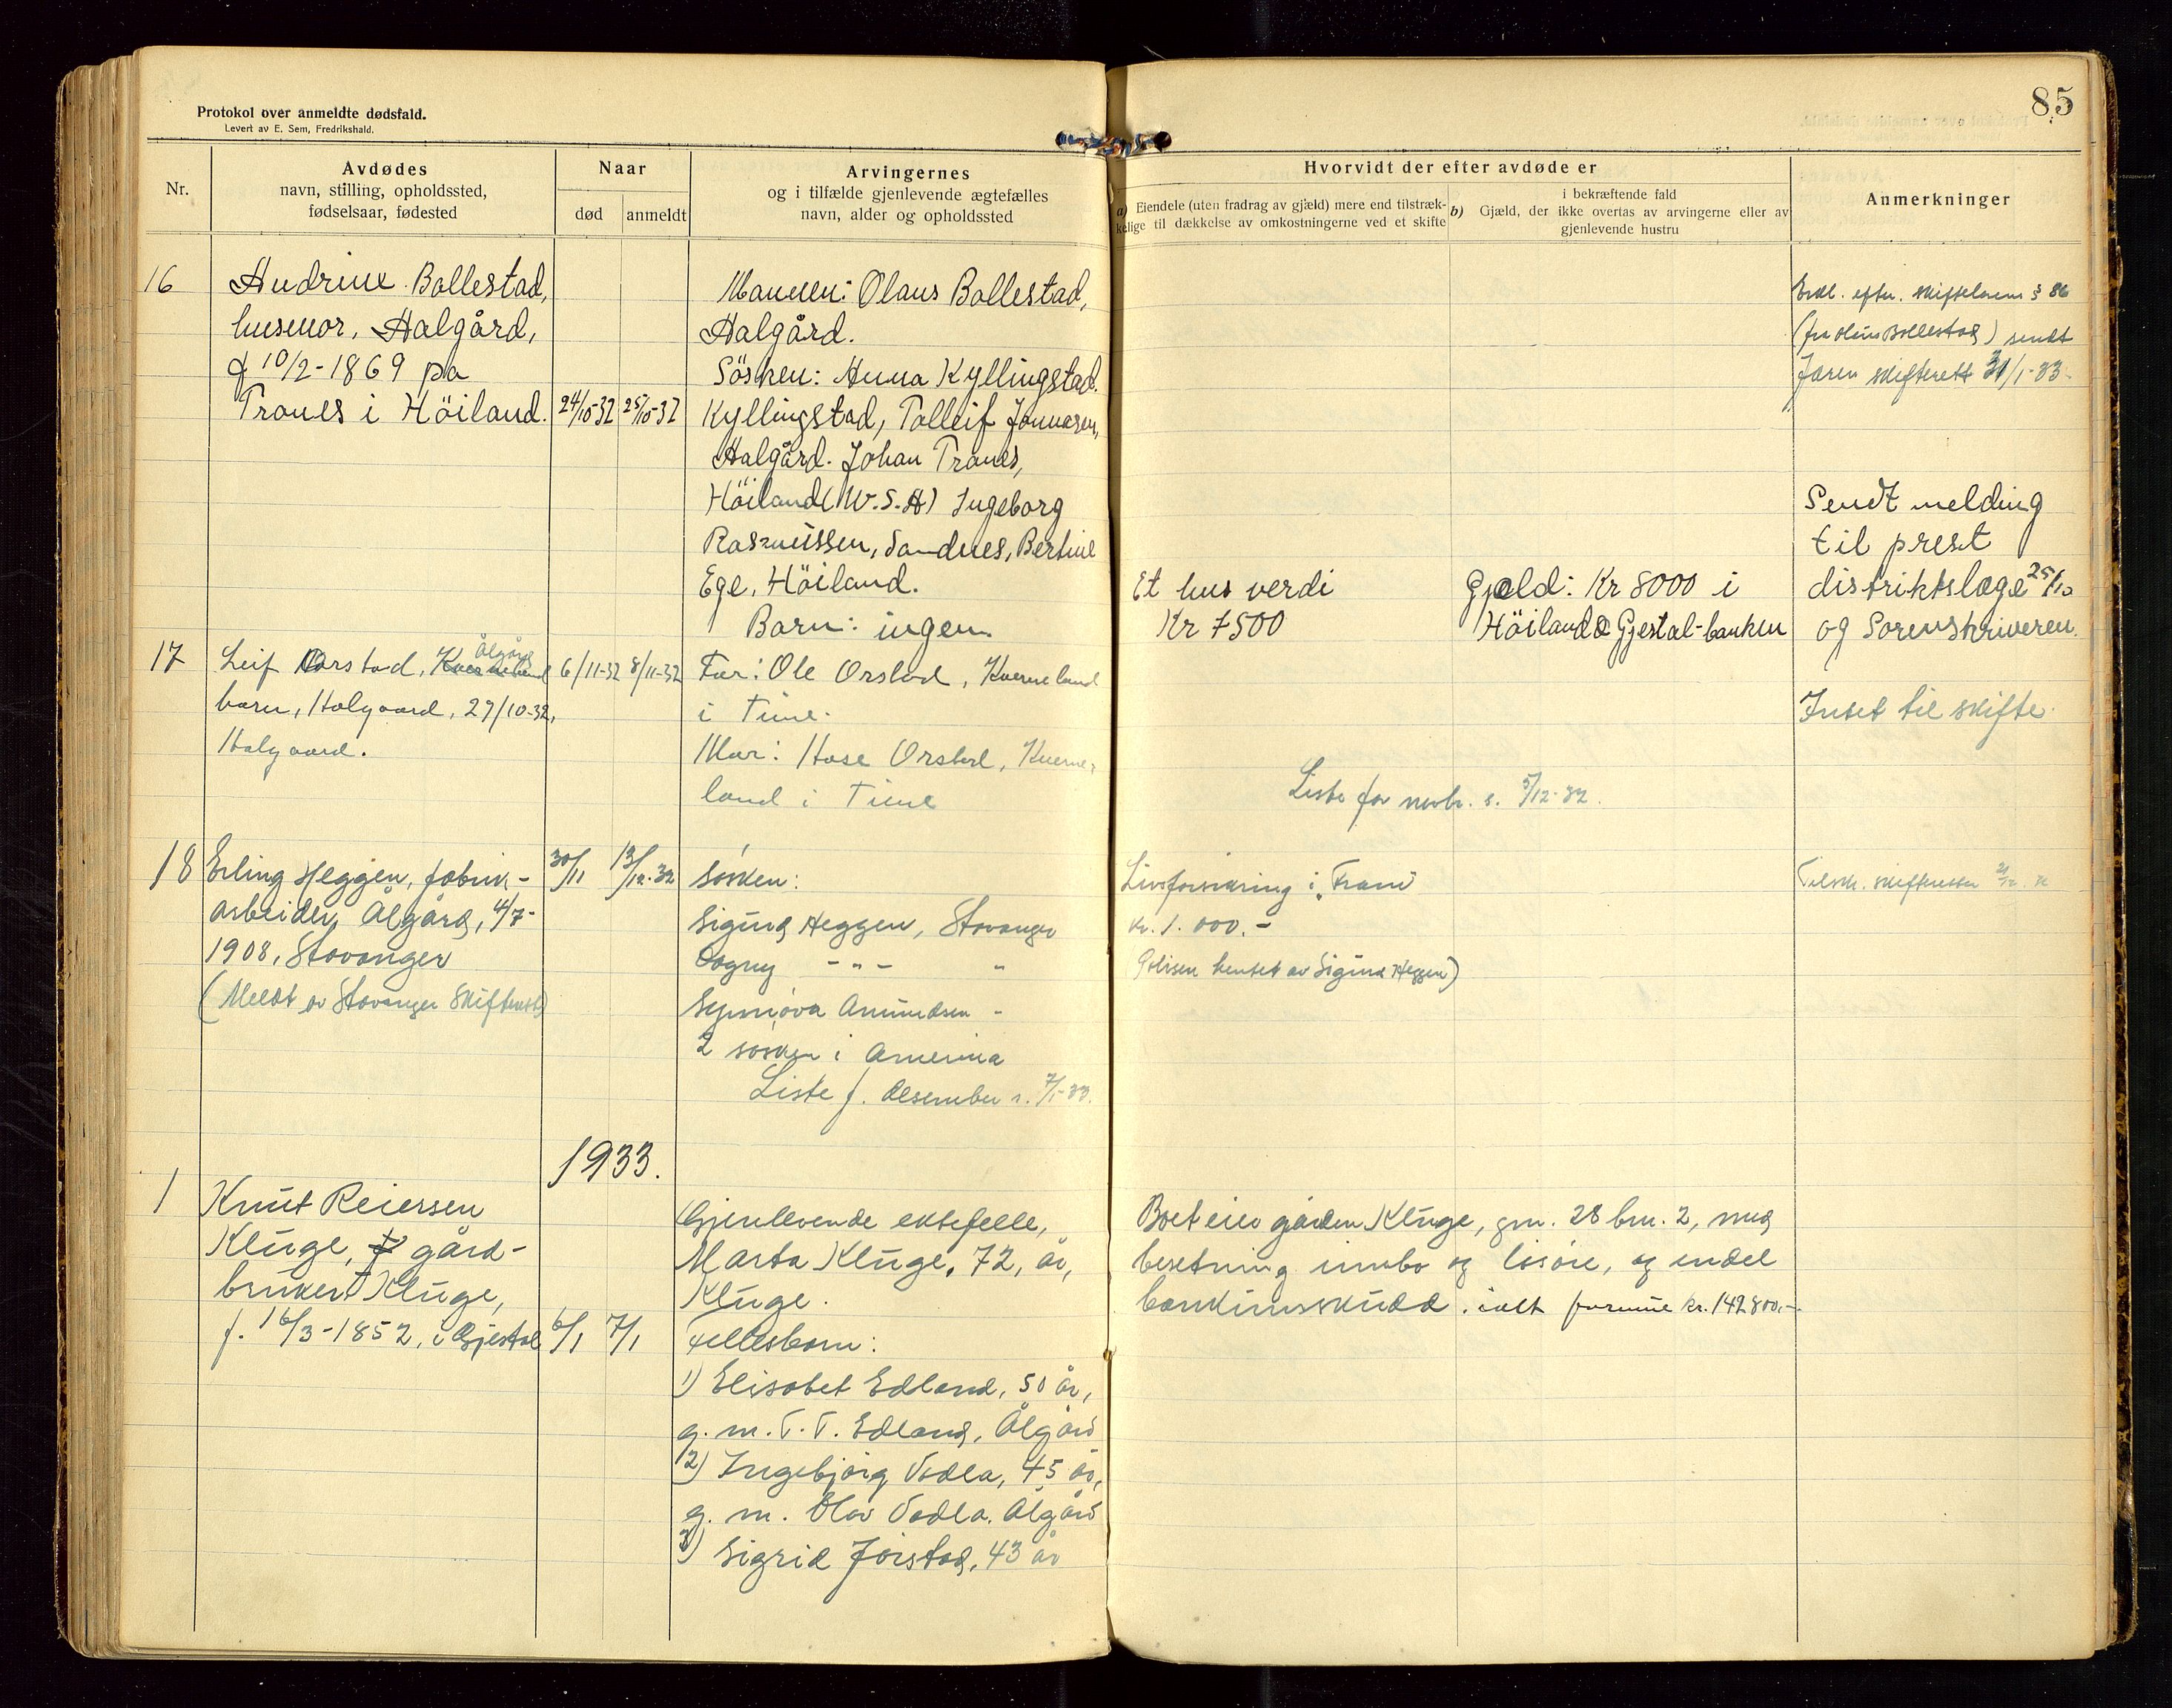 Protokol over anmeldte dødsfald.
Levert av E. Sem, Fredrikshald.
85
Nr.
Avdødes
navn, stilling, opholdssted,
fødselsaar, fødested
Naar
død
anmeldt
Arvingernes
og i tilfælde gjenlevende ægtefælles
navn, alder og opholdssted
Hvorvidt der efter avdøde er
a) Eiendele (uten fradrag av gjæld) mere end tilstræk-
kelige til dækkelse av omkostningerne ved et skifte
i bekræftende fald
b) Gjæld, der ikke overtas av arvingerne eller av
gjenlevende hustru
Anmerkninger
16
Andrine Bollestad,
husmor, Aalgård,
f 10/2-1869 på
Tranes i Höiland.
24/10-32
25/10-32
Mannen: Olaus Bollestad,
Aalgård.
Sösken: Anna Kyllingstad.
Kyllingstad, Tolleif Jonassen,
Aalgård. Johan Tranes,
Höiland (W.S.A) Ingeborg
Rasmussen, Sandnes, Bertine
Ege, Höiland.
Barn: ingen.
Et hus verdi
Kr 7500
Gjeld: Kr 8000 i
Höiland & Gjestal-banken
Erkl. efter. skifteloven § 86
(fra Olaus Bollestad) sendt
Jæren skifterett 31/1-33-
Sendt melding
til prest
distriktslæge 25/10
og Sorenskriveren.
17
Leif Orstad, Kverneland Ålgård
barn, Aalgaard, 29/10-32,
Aalgaard.
6/11-32
8/11-32
Far: Ole Orstad, Kverneland
i Time.
Mor: Aase Orstad, Kverne-
land i Time
Intet til skifte
Liste for novbr. s. 5/12-32.
18
Erling Heggen, fabrik-
arbeider, Ålgård, 4/7-
1908, Stavanger
(Meldt av Stavanger Skifterett)
30/11
13/12-32
Søsken:
Sigurd Heggen, Stavanger
Dagny - " - "
Synnøva Amundsen -
2 søsken i Amerika
Liste f. desember s. 7/1-33.
Livsforsikring i "Fram"
kr. 1.000.-
Polisen hentet av Sigurd Heggen)
skifteretten
1933.
1
Knut Reiersen
Kluge, gård-
bruker, Kluge,
f. 16/3-1852, i Gjestal
6/1
7/1
Gjenlevende ektefelle,
Marta Kluge, 72, år,
Kluge.
Fellesbarn:
1) Elisabet Edland, 50 år,
g. m. T. T. Edland, Ålgård
2) Ingebjørg Vadla, 45 år,
g. m. Olav Vadla. Ålgård
3) Sigrid Jørstad, 43 år
Boet eier gården Kluge, gnr. 28 bnr. 2, med
besetning innbo og løsøre, og endel
bankinnskudd. ialt formue kr. 142800,-